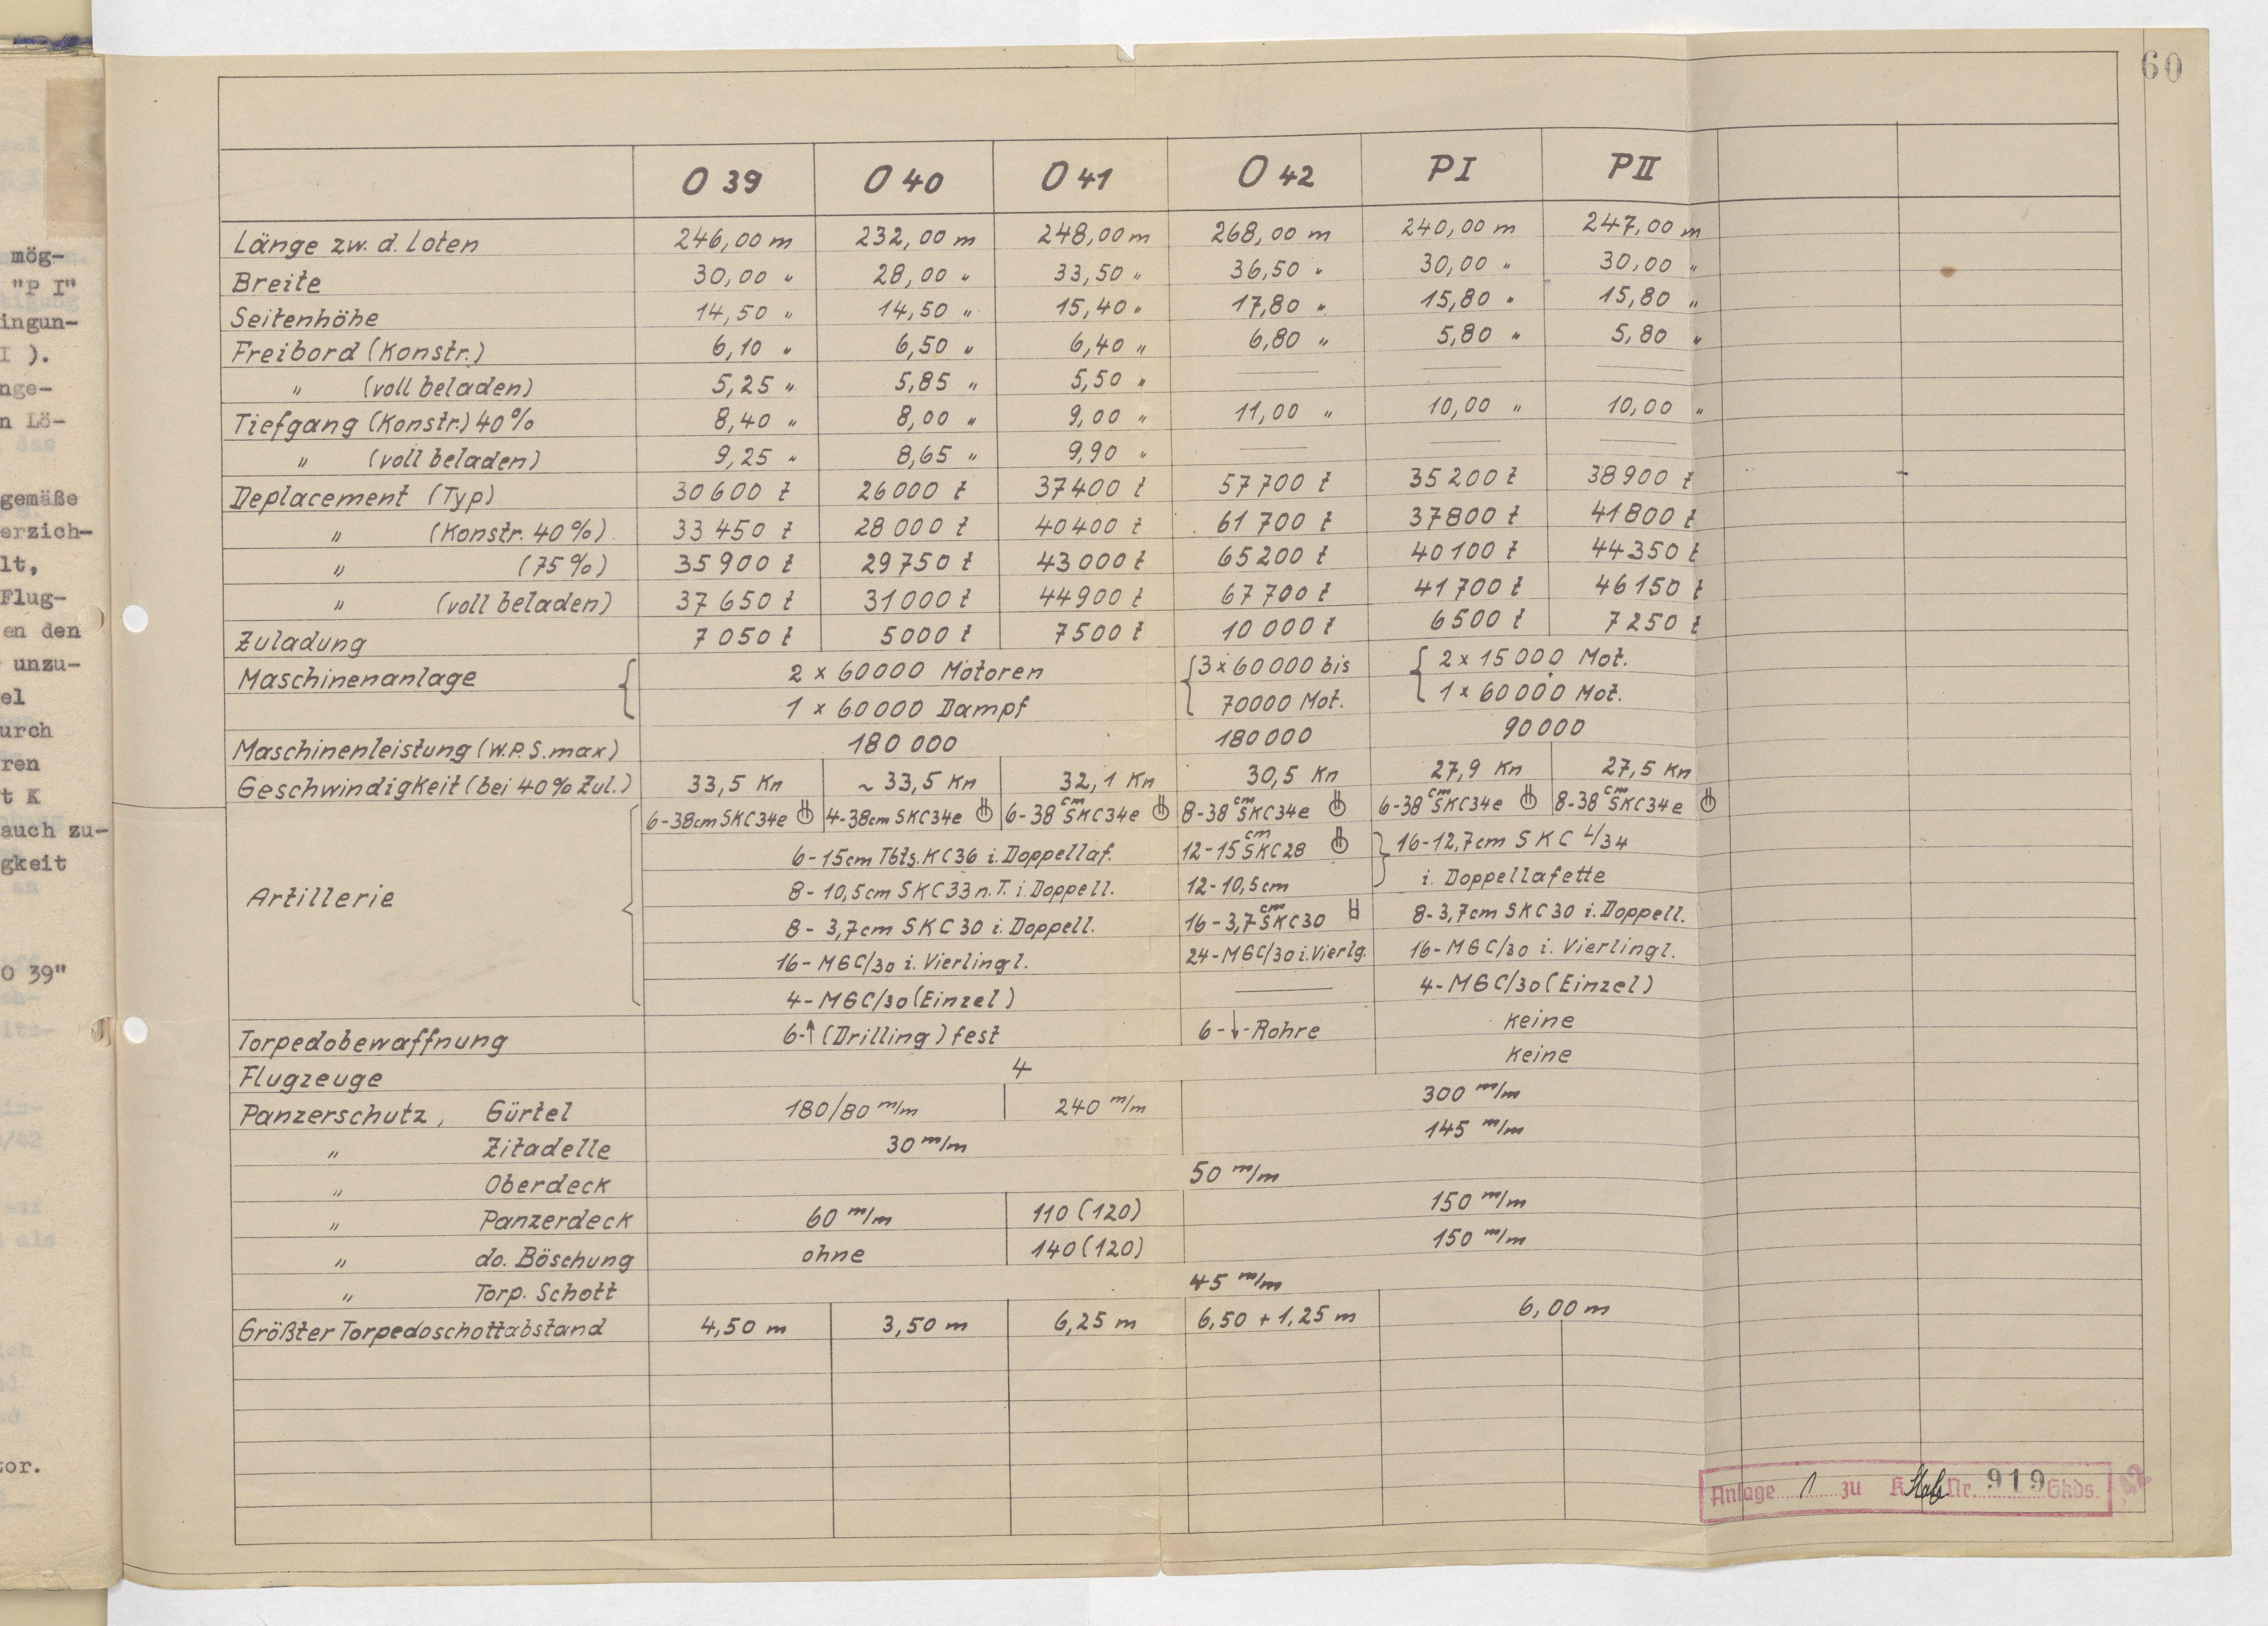 60
mög-
"P I"
ingun-
I ).
nge-
n Lö-
gemäße
erzich-
lt,
Flug-
en den
unzu-
el
urch
ren
t K
auch zu-
gkeit
O 39"
tor.
O 39 O 40 O 41 O 42 P I P II
Länge zw. d. Loten 246,00 m 232,00 m 248,00 m 268,00 m 240,00 m 247,00 m
Breite 30,00 " 28,00 " 33,50 " 36,50 " 30,00 " 30,00 "
Seitenhöhe 14,50 " 14,50 " 15,40 " 17,80 " 15,80 " 15,80 "
Freibord (Konstr.) 6,10 " 6,50 " 6,40 " 6,80 " 5,80 " 5,80 "
" (voll beladen) 5,25 " 5,85 " 5,50 " — — —
Tiefgang (Konstr.) 40% 8,40 " 8,00 " 9,00 " 11,00 " 10,00 " 10,00 "
" (voll beladen) 9,25 " 8,65 " 9,90 " — — —
Deplacement (Typ) 30600 t 26000 t 37400 t 57700 t 35200 t 38900 t
" (Konstr. 40%) 33450 t 28000 t 40400 t 61700 t 37800 t 41800 t
" (75%) 35900 t 29750 t 43000 t 65200 t 40100 t 44350 t
" (voll beladen) 37650 t 31000 t 44900 t 67700 t 41700 t 46150 t
Zuladung 7050 t 5000 t 7500 t 10000 t 6500 t 7250 t
Maschinenanlage { 2 x 60000 Motoren { 3 x 60000 bis { 2 x 15000 Mot.
1 x 60000 Dampf 70000 Mot. 1 x 60000 Mot.
Maschinenleistung (W.P.S. max) 180 000 180000 90000
Geschwindigkeit (bei 40% Zul.) 33,5 Kn ~ 33,5 Kn 32,1 Kn 30,5 Kn 27,9 Kn 27,5 Kn
6-38cm SKC34e 4-38cm SKC34e 6-38 cm SKC34e 8-38 cm SKC34e 6-38 cm SKC34e 8-38 cm SKC34e
6-15cm Tbts. KC36 i. Doppellaf. 12-15 cm SKC28 } 16-12,7cm SKC L/34
Artillerie 8-10,5cm SKC33 n.T. i. Doppell. 12-10,5cm i. Doppellafette
8-3,7cm SKC30 i. Doppell. 16-3,7 cm SKC30 8-3,7cm SKC30 i. Doppell.
16-MGC/30 i. Vierlingl. 24-MGC/30 i. Vierlg. 16-MGC/30 i. Vierlingl.
4-MGC/30 (Einzel) — 4-MGC/30 (Einzel)
Torpedobewaffnung 6-↑ (Drilling) fest 6-↓-Rohre keine
Flugzeuge 4 keine
Panzerschutz, Gürtel 180/80 m/m 240 m/m 300 m/m
" Zitadelle 30 m/m 145 m/m
" Oberdeck 50 m/m
" Panzerdeck 60 m/m 110 (120) 150 m/m
" do. Böschung ohne 140 (120) 150 m/m
" Torp. Schott 45 m/m
Größter Torpedoschottabstand 4,50 m 3,50 m 6,25 m 6,50 + 1,25 m 6,00 m
Anlage 1 zu K Stab Nr. 919 Gkds. 42